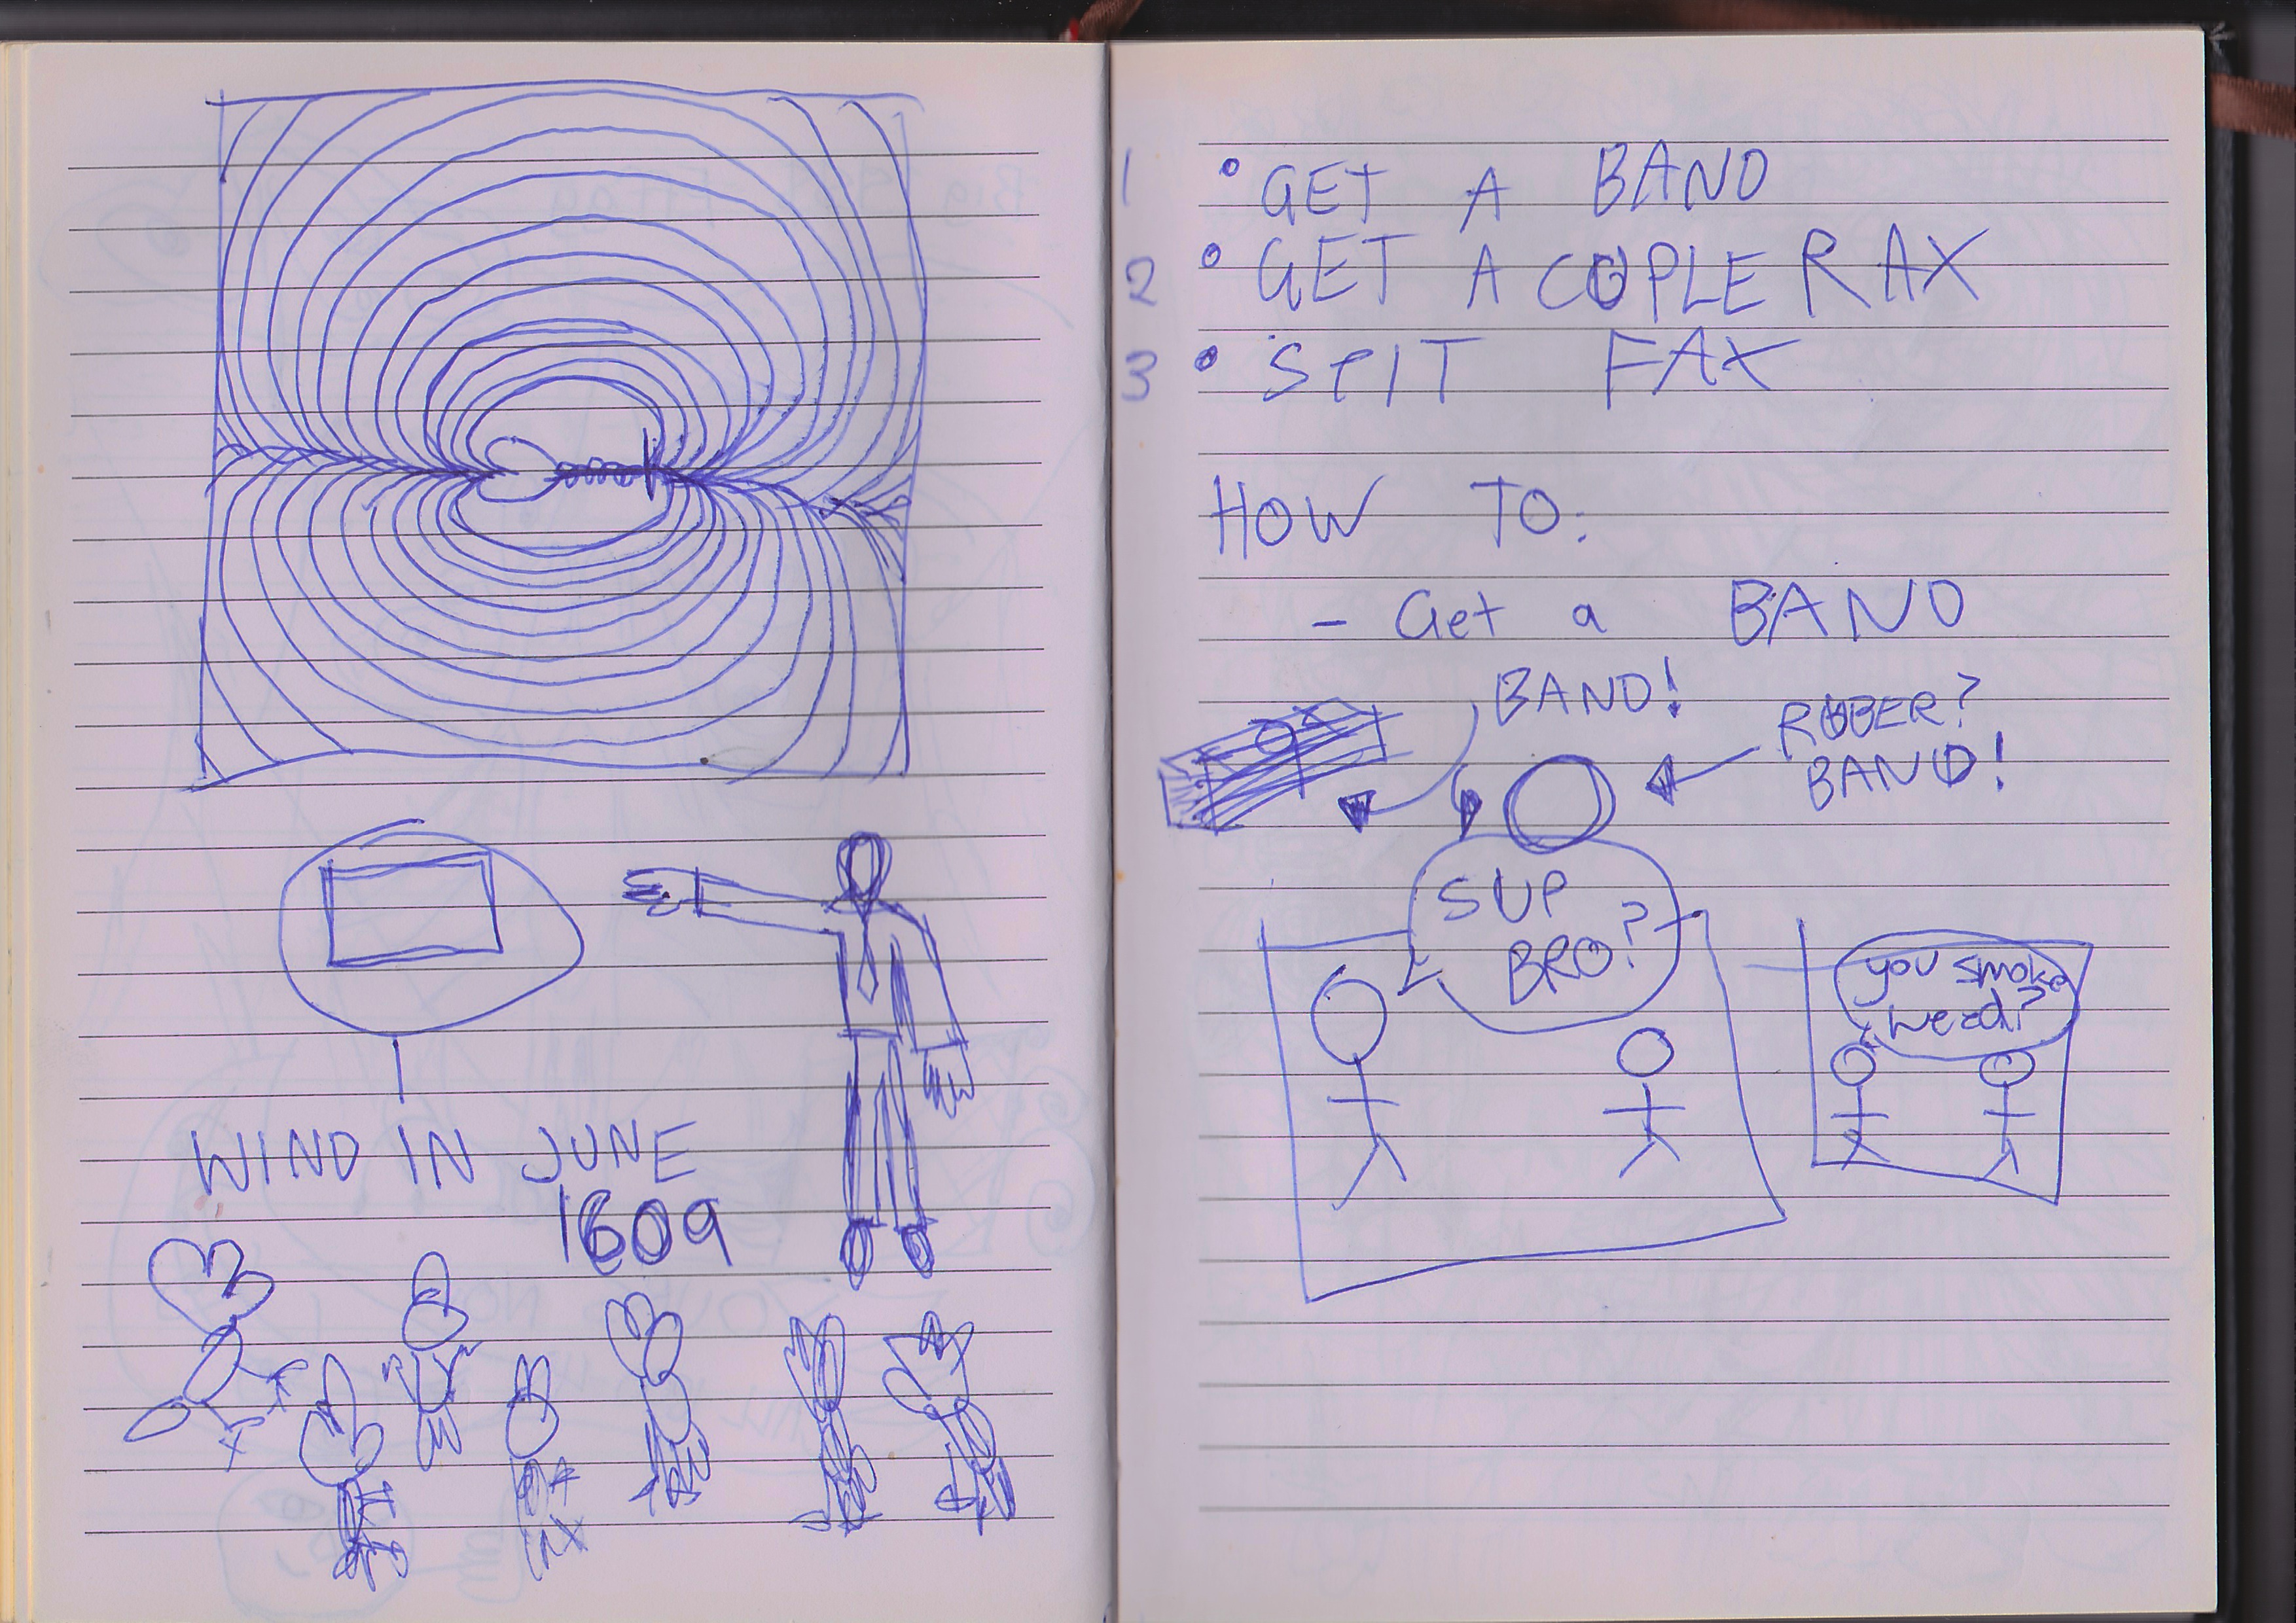 WIND IN JUNE
1609
1 • GET A BAND
2 • GET A COUPLE RAX
3 • SPIT FAX
HOW TO:
- Get a BAND
BAND!
RUBBER?
BAND!
SUP
BRO?
you smoke
weed?